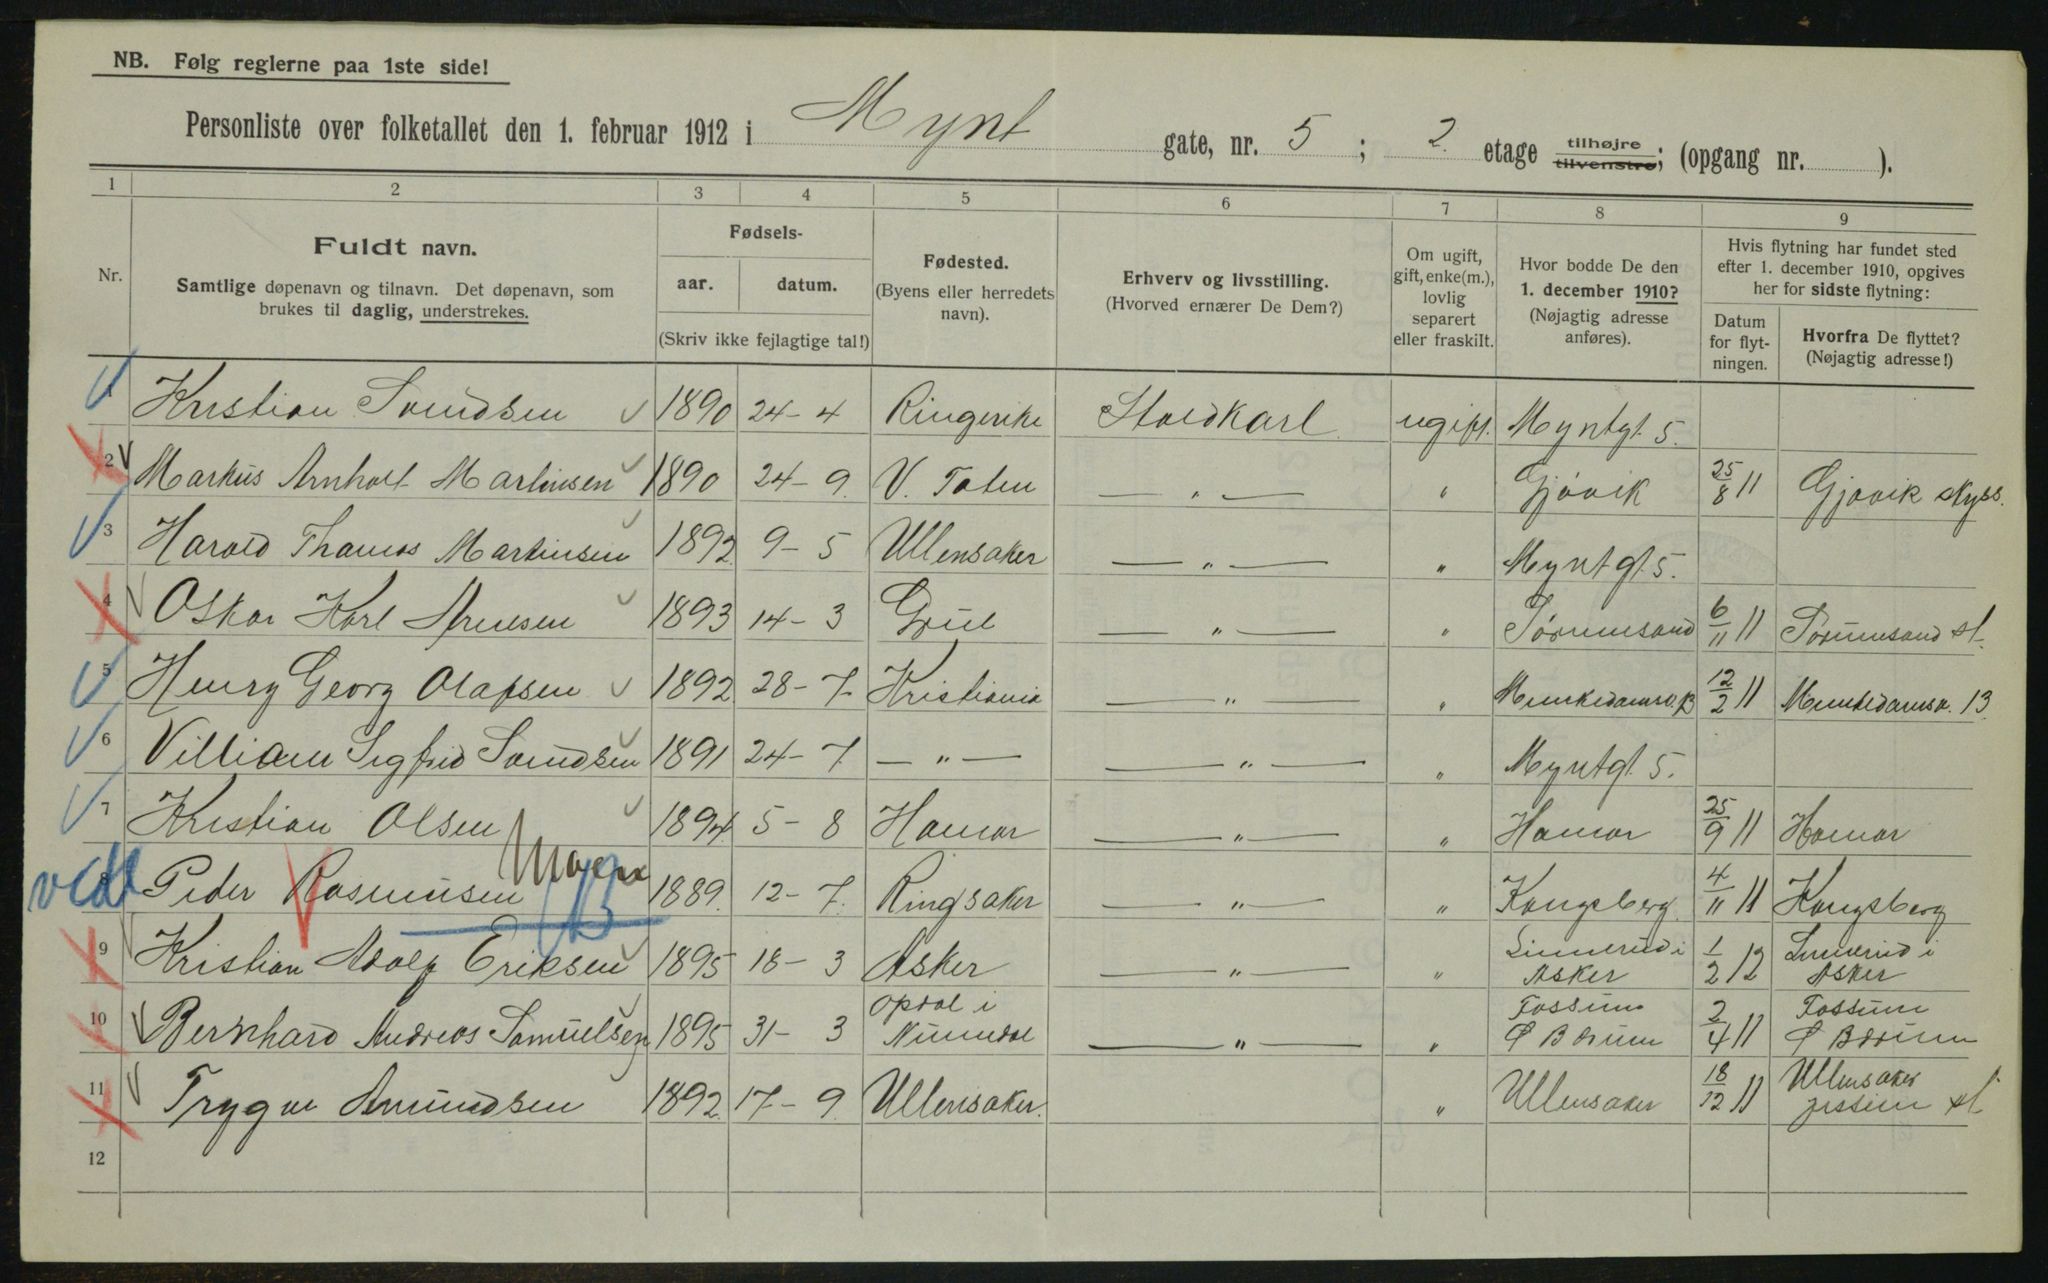 NB. Følg reglerne paa 1ste side!
Personliste over folketallet den 1. februar 1912 i Mynt gate, nr. 5 ; 2. etage tilhøjre tilvenstre; (opgang nr. ).
1 2 3 4 5 6 7 8 9
Nr. Fuldt navn. Samtlige døpenavn og tilnavn. Det døpenavn, som brukes til daglig, understrekes.
Fødsels- aar. datum. (Skriv ikke fejlagtige tal!)
Fødested. (Byens eller herredets navn).
Erhverv og livsstilling. (Hvorved ernærer De Dem?)
Om ugift, gift, enke(m.), lovlig separert eller fraskilt.
Hvor bodde De den 1. december 1910? (Nøjagtig adresse anføres).
Hvis flytning har fundet sted efter 1. december 1910, opgives her for sidste flytning:
Datum for flytningen. Hvorfra De flyttet? (Nøjagtig adresse!)
1 Kristian Svendsen 1890 24-4 Ringerike Staldkarl ugift. Myntgt. 5.
2 Markus Arnholt Martinsen 1890 24-9. V. Toten — „ — „ Gjøvik 25/8 11 Gjøvik skyss.
3 Harald Thomas Martinsen 1892 9-5 Ullensaker — „ — „ Myntgt. 5.
4 Oskar Karl Arnesen 1893 14-3 Grue — „ — „ Sørumsand 6/11 11 Sørumsand st.
5 Henry Georg Olafsen 1892 28-7 Kristiania — „ — „ Munkedamsv. 13 12/2 11 Munkedamsv. 13
6 Villiam Sigfrid Svendsen 1891 24-7 — „ — — „ — „ Myntgt. 5.
7 Kristian Olsen 1894 5-8 Hamar — „ — „ Hamar 25/9 11 Hamar
8 Peder Rasmusen Moen 1889. 12-7. Ringsaker — „ — „ Kongsberg. 4/11 11 Kongsberg
9 Kristian Adolf Eriksen 1895 18-3 Asker — „ — „ Linnerud i Asker 1/2 12 Linnerud i Asker
10 Bernhard Andreas Samuelsen 1895 31-3 Opdal i Numedal — „ — „ Fossum Ø Bærum 2/4 11 Fossum Ø Bærum
11 Trygve Amundsen 1892. 17-9 Ullensaker. „ Ullensaker 18/12 11 Ullensaker Jessheim st.
12